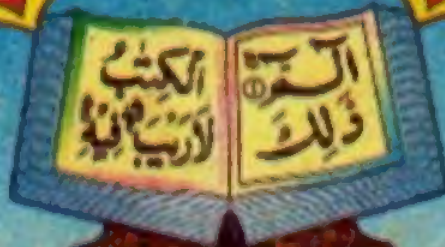 الٓمّٓ ①
ذَٰلِكَ
الْكِتٰبُ
لَارَيْبَ فِيْهِ